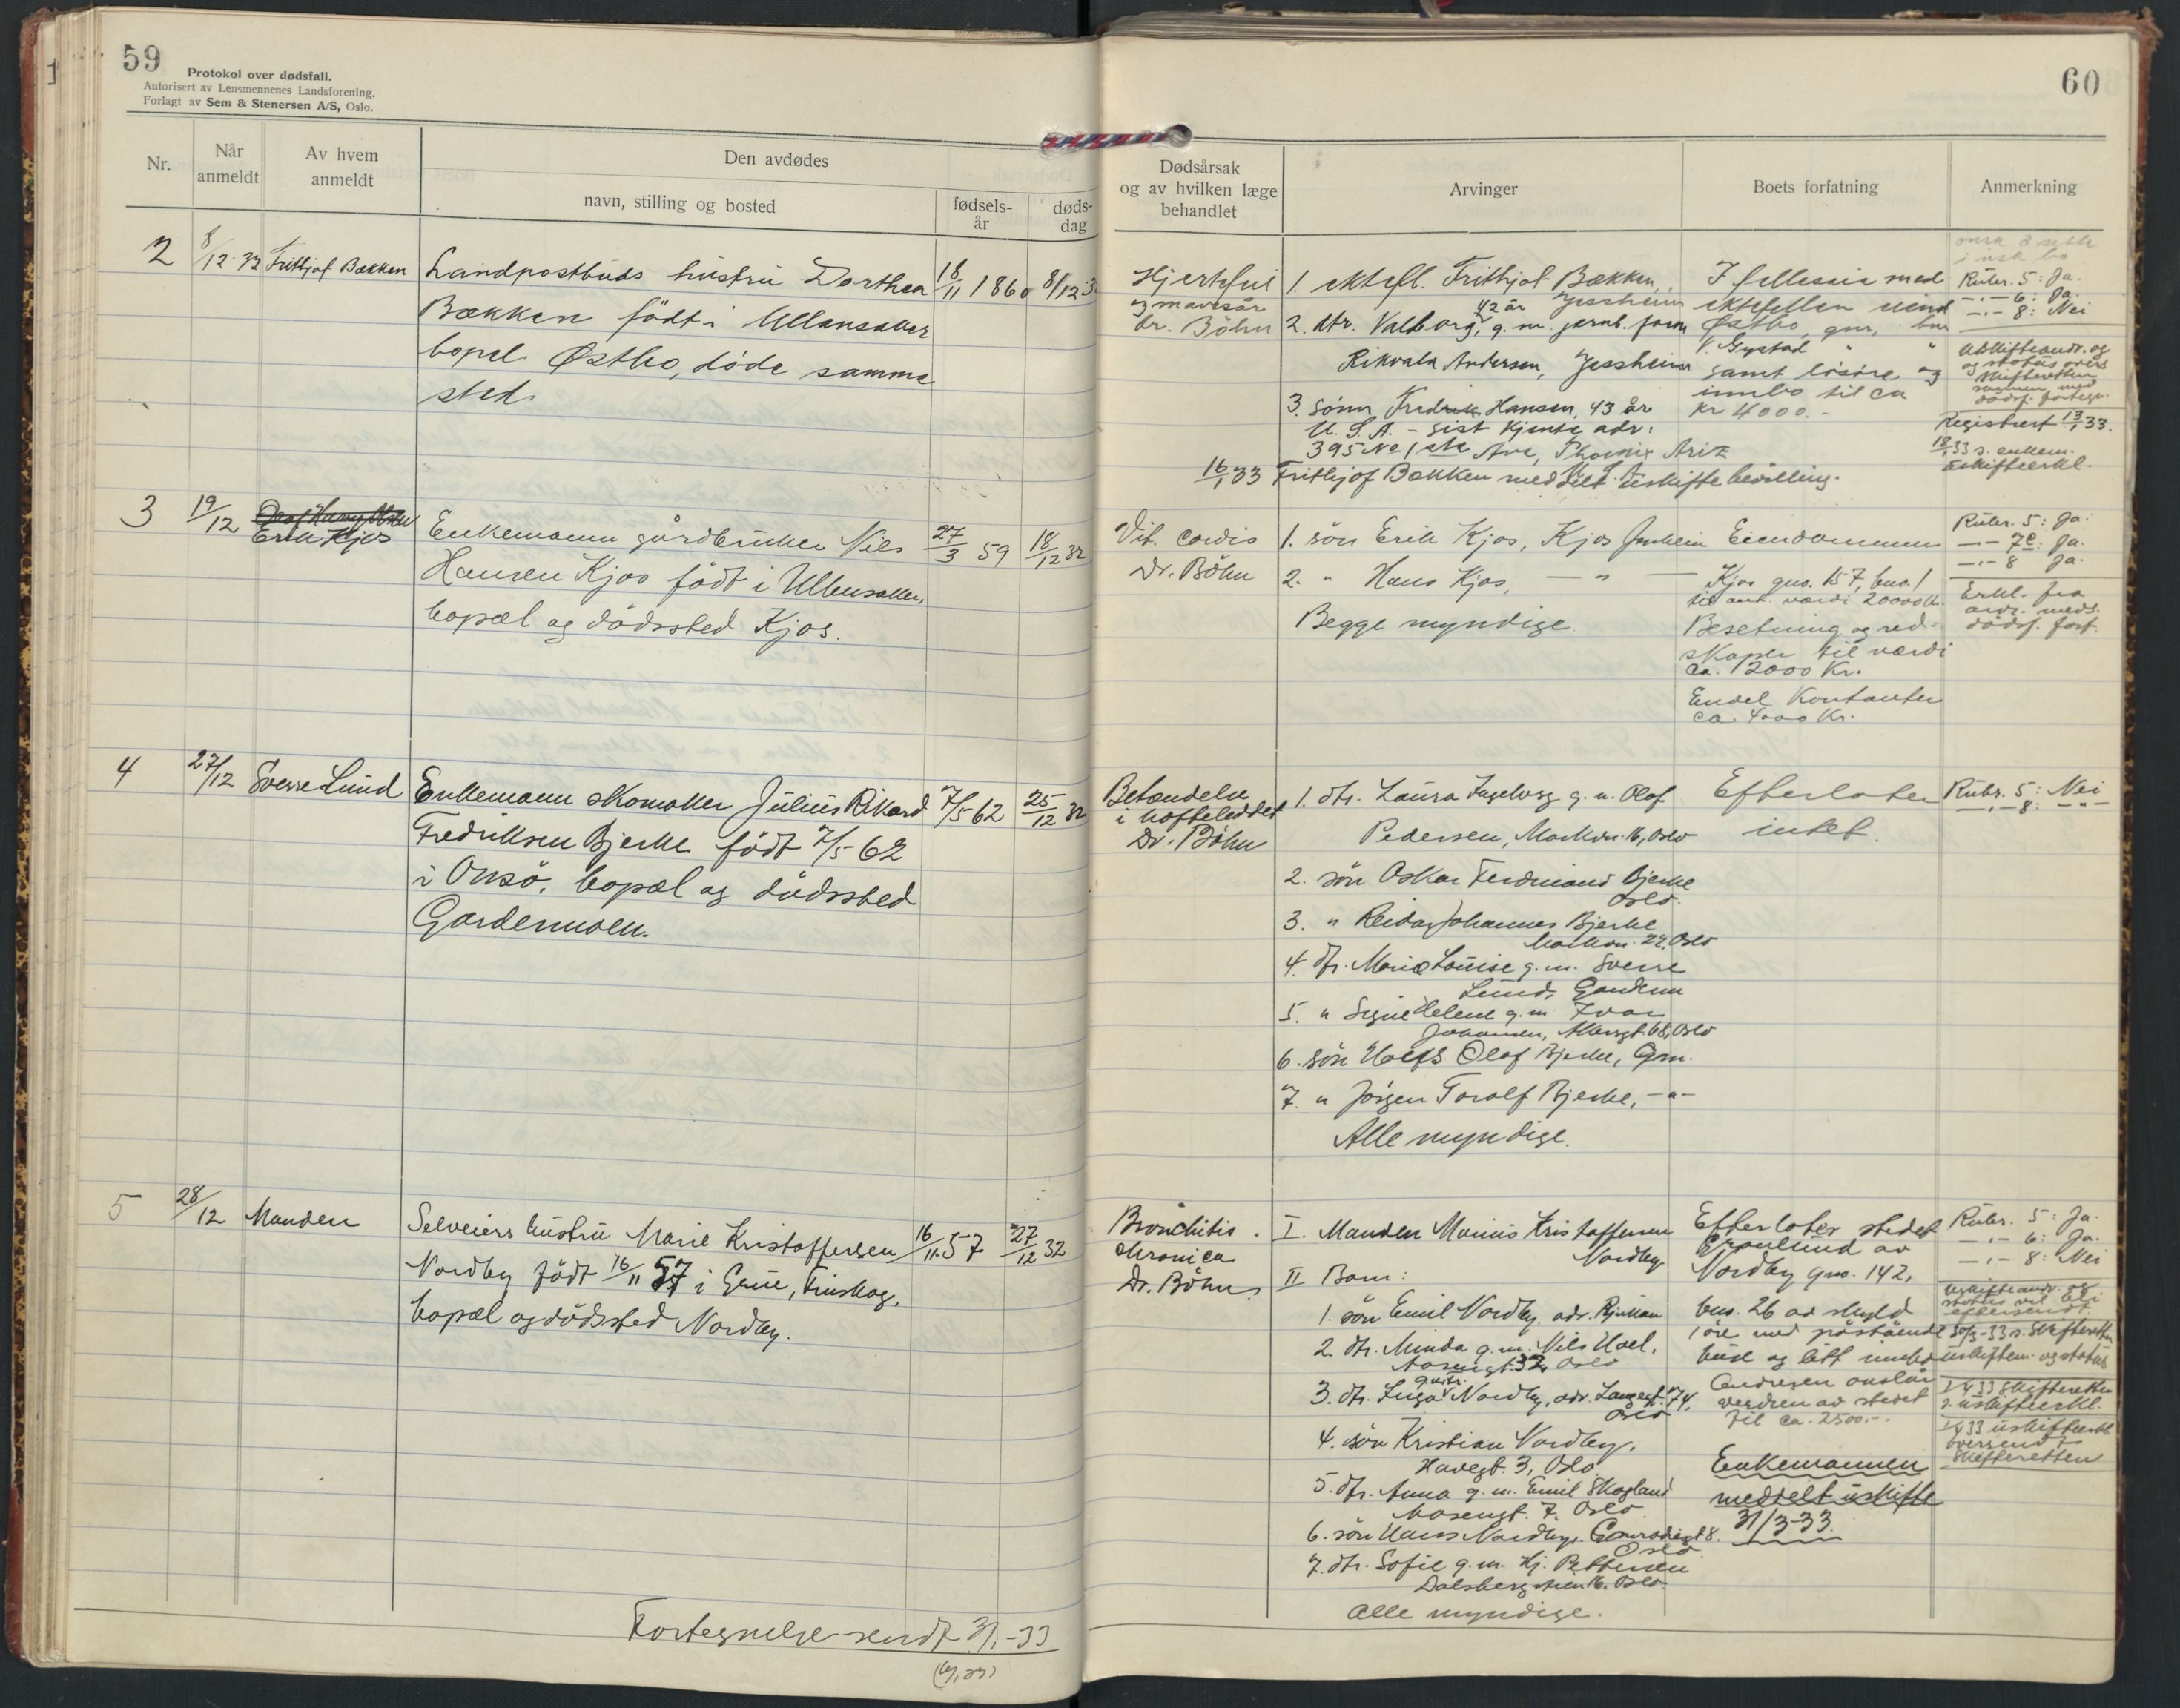 59
Protokol over dødsfall.
Autorisert av Lensmennenes Landsforening.
Forlagt av Sem & Stenersen A/S, Oslo.
Nr.
Når anmeldt
Av hvem anmeldt
Den avdødes
navn, stilling og bosted
fødsels-år
døds-dag
2
8/12 32
Frithjof Bækken
Landpostbuds hustru Dorthea
Bækken født i Ullensaker
bopel Østbo, døde samme
sted.
18/11 1860
8/12 3
3
19/12
Erik Kjos
Enkemann gårdbruker Nils
Hansen Kjos født i Ullensaker,
bopæl og dødssted Kjos.
27/3 59
18/12 32
4
27/12
Sverre Lund
Enkemann skomaker Julius Rikard
Fredriksen Bjerke født 7/5 62
i Onsø, bopæl og dødssted
Gardermoen.
7/5 62
25/12 32
5
28/12
Manden
Selveiers hustru Marie Kristoffersen
Nordby født 16/11 57 i Grue, Finskog,
bopæl og dødssted Nordby.
16/11 57
27/12 32
Fortegnelse sendt 3/1-33
60
Dødsårsak
og av hvilken læge
behandlet
Arvinger
Boets forfatning
Anmerkning
Hjertefeil
og mavesår
dr. Böhn
1. ektefl. Frithjof Bækken,
Jessheim
2. dtr. Valborg, 42 år g. m. jernb. form
Rikvald Andersen, Jessheim
3. sønn Fredrik Hansen, 43 år
U.S.A. - sist kjente adr:
395 No 1 ste Ave, Phoenix Ariz
U.S.A.
16/1 33 Frithjof Bækken meddelt uskiftebevilling.
I felleseie med
ektefellen eiend
Østbo, gnr, bnr
V. Gystad " "
samt løsøre og
innbo til ca
kr 4000.-
Rubr. 5: Ja.
-"- 6: Ja.
-"- 8: Nei
Uskifteandr. og
og status overs
skifteretten
sammen med
dødsf. fortegn.
Registrert 13/1 33.
18/1 33 s. enkem.
uskifteerkl.
Vit. cordis
Dr. Böhn
1. søn Erik Kjos, Kjos Jessheim
2. " Hans Kjos, - " -
Begge myndige.
Eiendommen
Kjos gno. 157, bno. 1
til ant. værdi 20000 kr.
Besetning og red-
skaper til værdi
ca. 12000 Kr.
Endel Kontanter
ca. 4000 Kr.
Rubr. 5: Ja.
-"- 7c: Ja.
-"- 8 Ja.
Erkl. fra
arv. meds.
dødsf. fort.
Betændelse
i hofteleddet
Dr. Böhn
1. dtr. Laura Ingeborg g. m. Olaf
Pedersen, Markvn. 16, Oslo
2. søn Oskar Ferdinand Bjerke
Oslo.
3. " Reidar Johannes Bjerke
Markvn. 22, Oslo
4. dtr. Marie Louise g. m. Sverre
Lund, Garderm
5. " Signe Helene g. m. Ivar
Johansen, Akersgt. 68, Oslo
6. søn Olaf Bjerke, Grm.
7. " Jörgen Torolf Bjerke, -"-
Alle myndige.
Efterlater
intet.
Rubr. 5: Nei
-"- 8: -"-
Bronchitis
chronica
Dr. Böhn
I. Manden Marius Kristoffersen
Nordby
II Barn:
1. søn Emil Nordby, adr. Rjukan
2. dtr. Minda g. m. Nils Hoel,
Aasengt. 32 Oslo
3. dtr. Inga Nordby, adr. Langegt. 74,
Oslo
4. søn Kristian Nordby,
Havegt. 3, Oslo.
5. dtr. Anna g. m. Emil Skogland
Mosengt. 7, Oslo
6. søn Hans Nordby, Conradigt 8.
Oslo.
7. dtr. Sofie g. m. Hj. Pettersen
Dalsbergstien 16. Oslo
Alle myndige.
Efterlater stedet
Granlund av
Nordby gno. 142,
bno. 26 av skyld
1 øre med påstående
huse og litt innbo
verdien av stedet
til ca. 2500.-
Enkemannen
meddelt uskifte
31/3-33.
Rubr. 5: Ja.
-"- 6: Ja.
-"- 8: Nei
Uskifteandr. og
status vil bli
eftersendt.
30/3-33 s. Skifteretten
uskiftem. og status
1/4 33 Skifteretten
s. uskifteerkl.
1/4 33 uskifteerkl
oversendt
Skifteretten